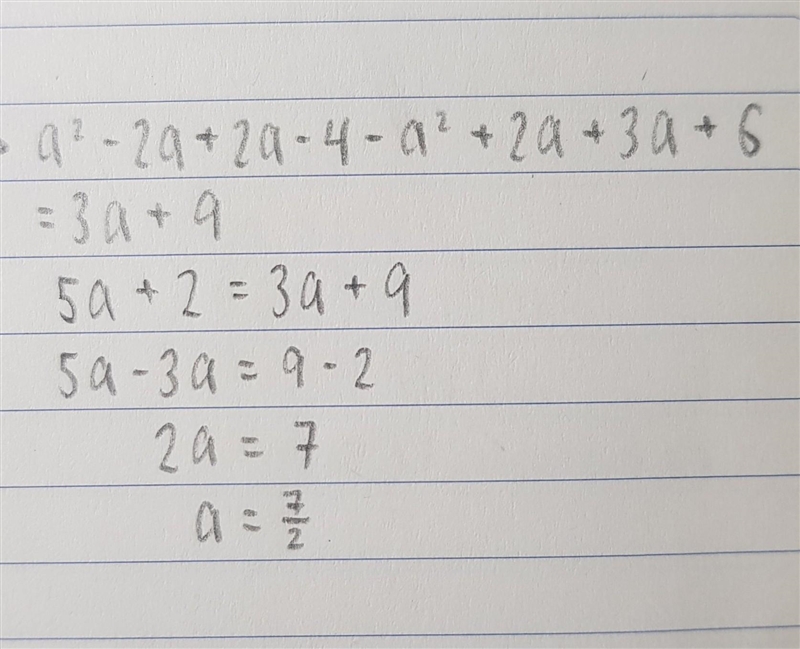 a² - 2a + 2a - 4 - a² + 2a + 3a + 6
= 3a + 9
5a + 2 = 3a + 9
5a - 3a = 9 - 2
2a = 7
a = 7/2